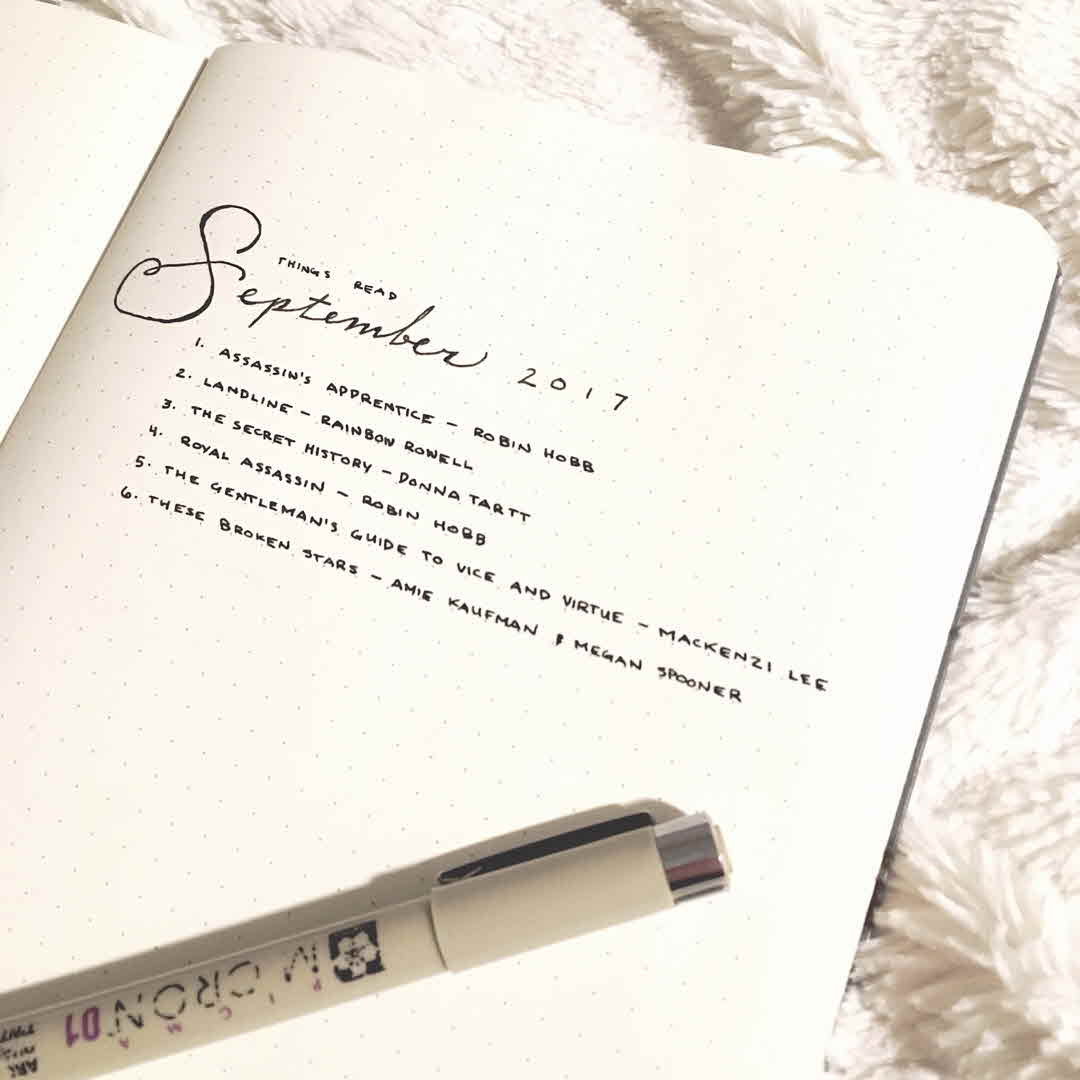 THINGS READ
September 2017
1. ASSASSIN'S APPRENTICE – ROBIN HOBB
2. LANDLINE – RAINBOW ROWELL
3. THE SECRET HISTORY – DONNA TARTT
4. ROYAL ASSASSIN – ROBIN HOBB
5. THE GENTLEMAN'S GUIDE TO VICE AND VIRTUE – MACKENZI LEE
6. THESE BROKEN STARS – AMIE KAUFMAN & MEGAN SPOONER
PIGMA
MICRON 01